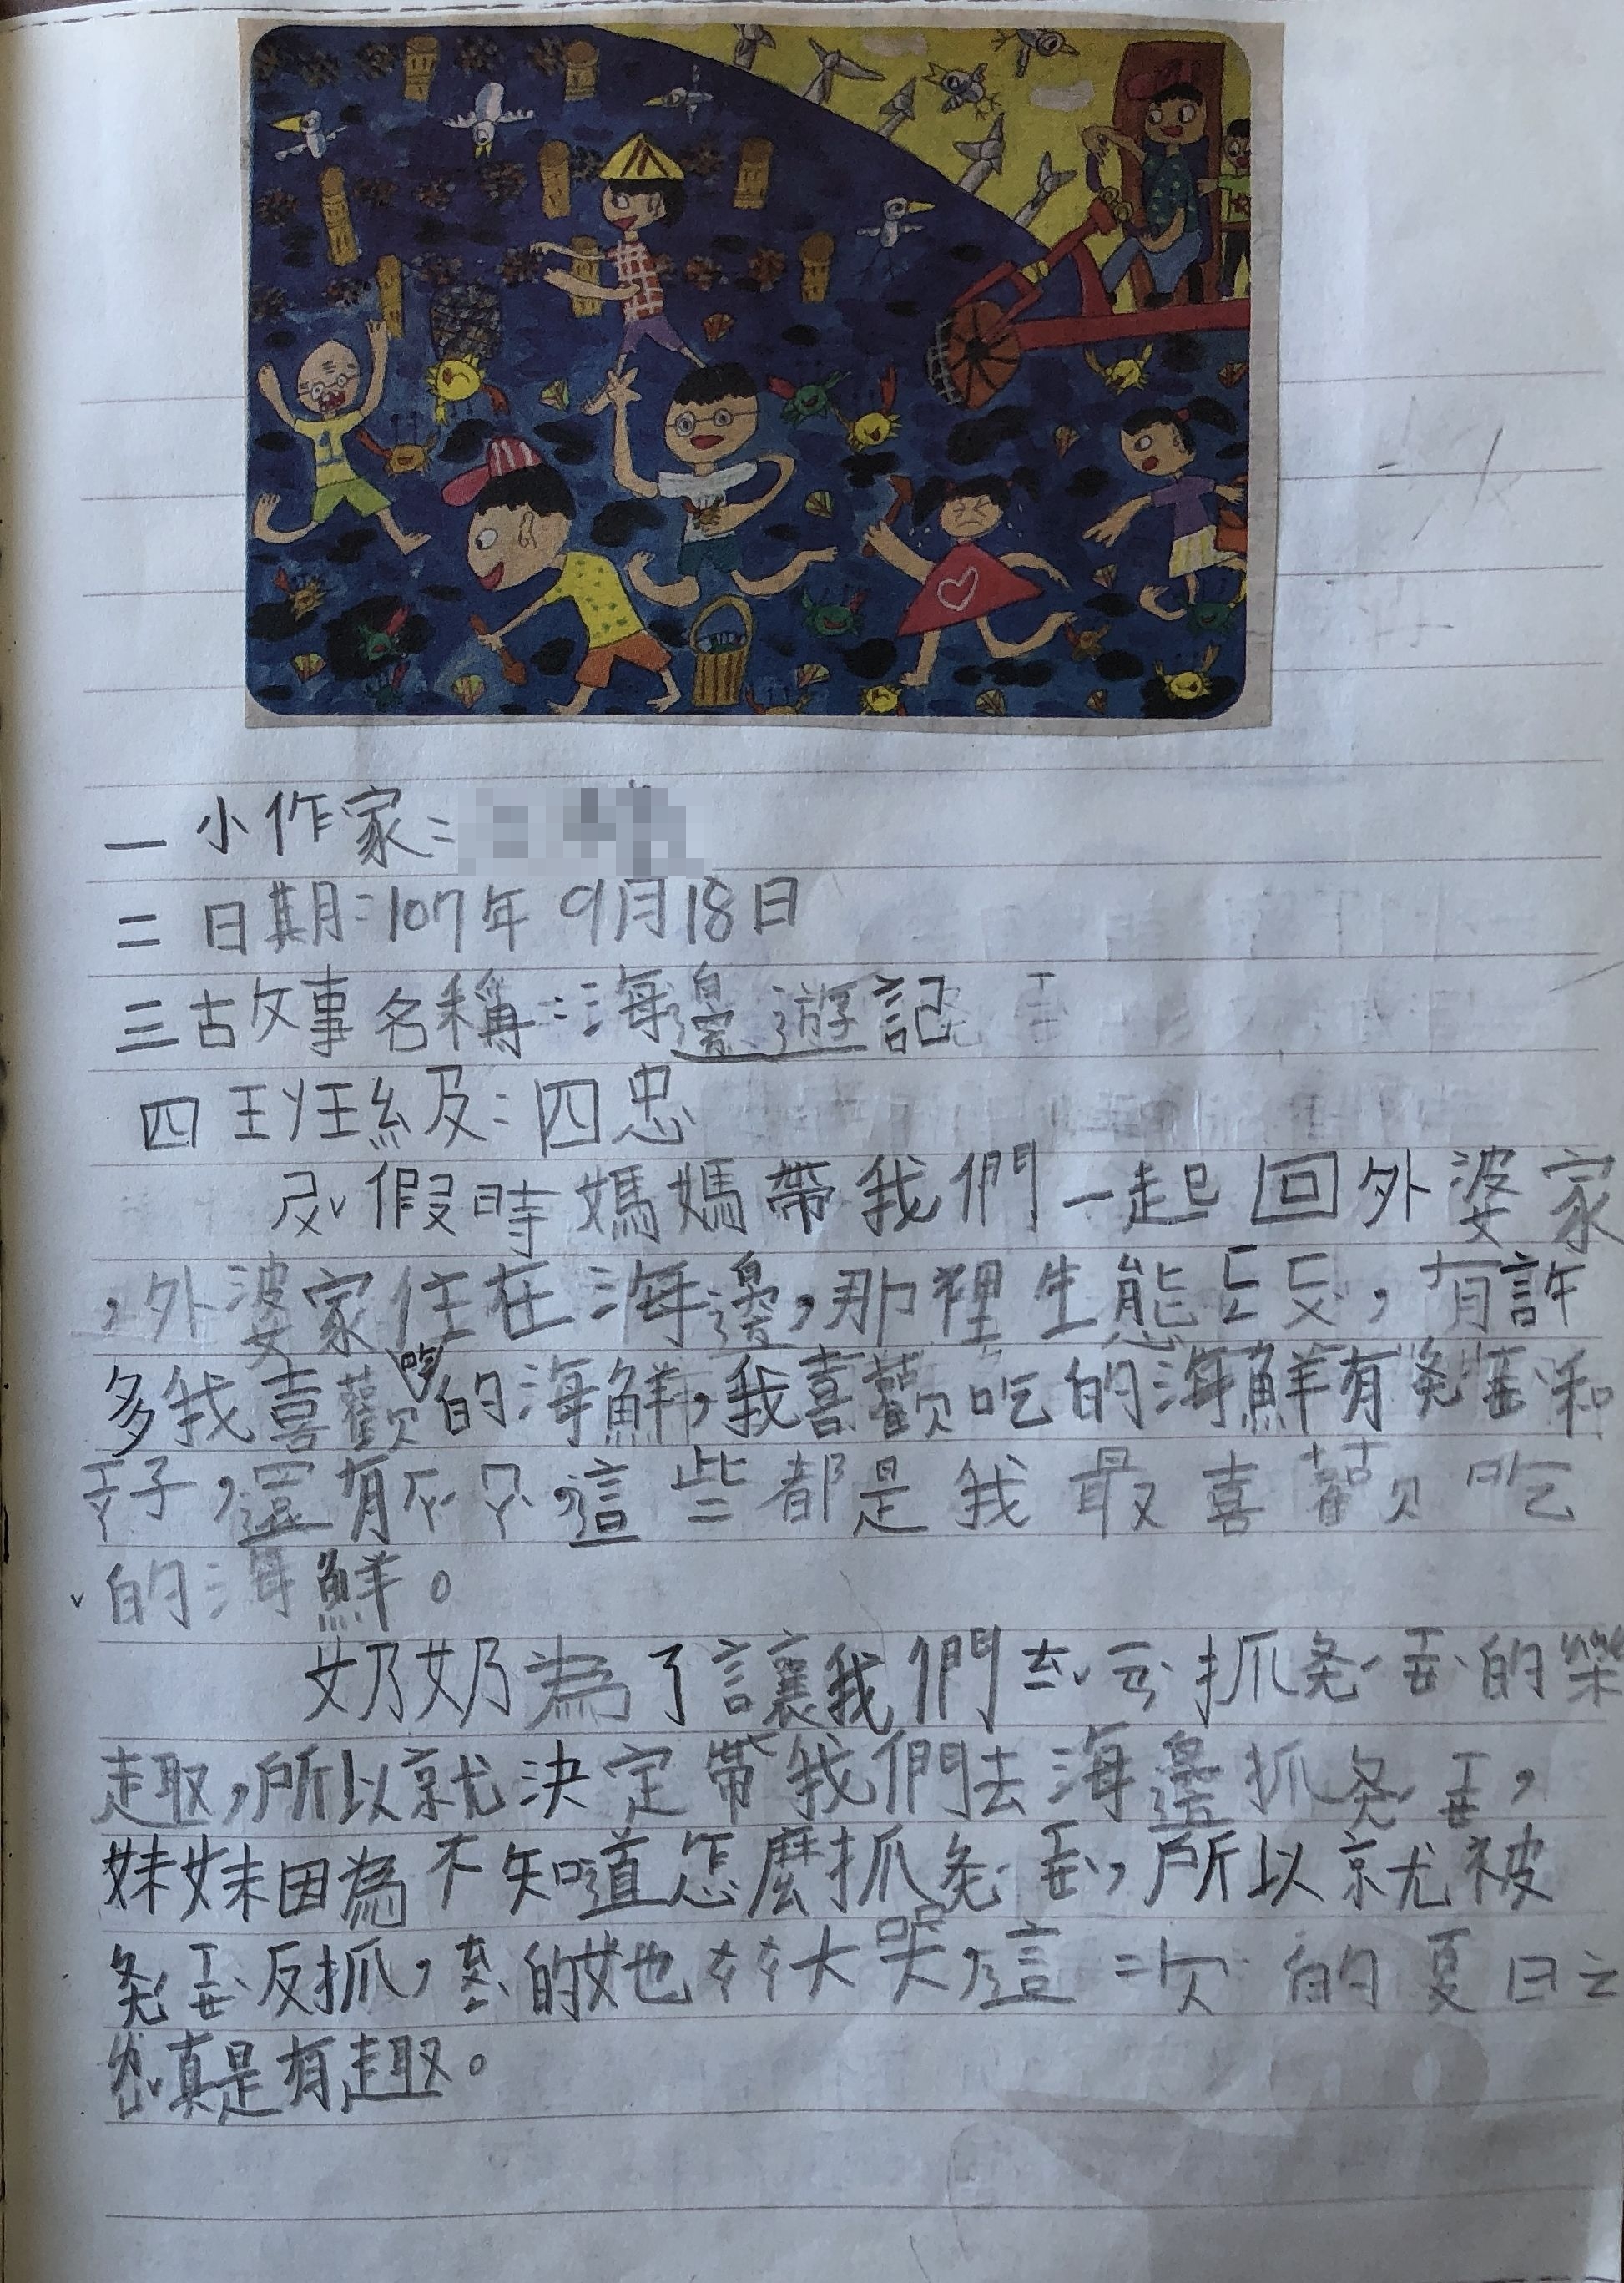 一 小作家:
二 日期:107年 9月18日
三 古故事名稱:海邊遊記
四 班級:四忠
假時媽媽帶我們一起回外婆家
,外婆家住在海邊,那裡生態,有許
多我喜歡吃的海鮮,我喜歡吃的海鮮有和
子,還有,這些都是我最喜歡吃
的海鮮。
奶奶為了讓我們抓的樂
趣,所以就決定帶我們去海邊抓,
妹妹因為不知道怎麼抓,所以就被
反抓,的她大哭,這次的夏日
真是有趣。